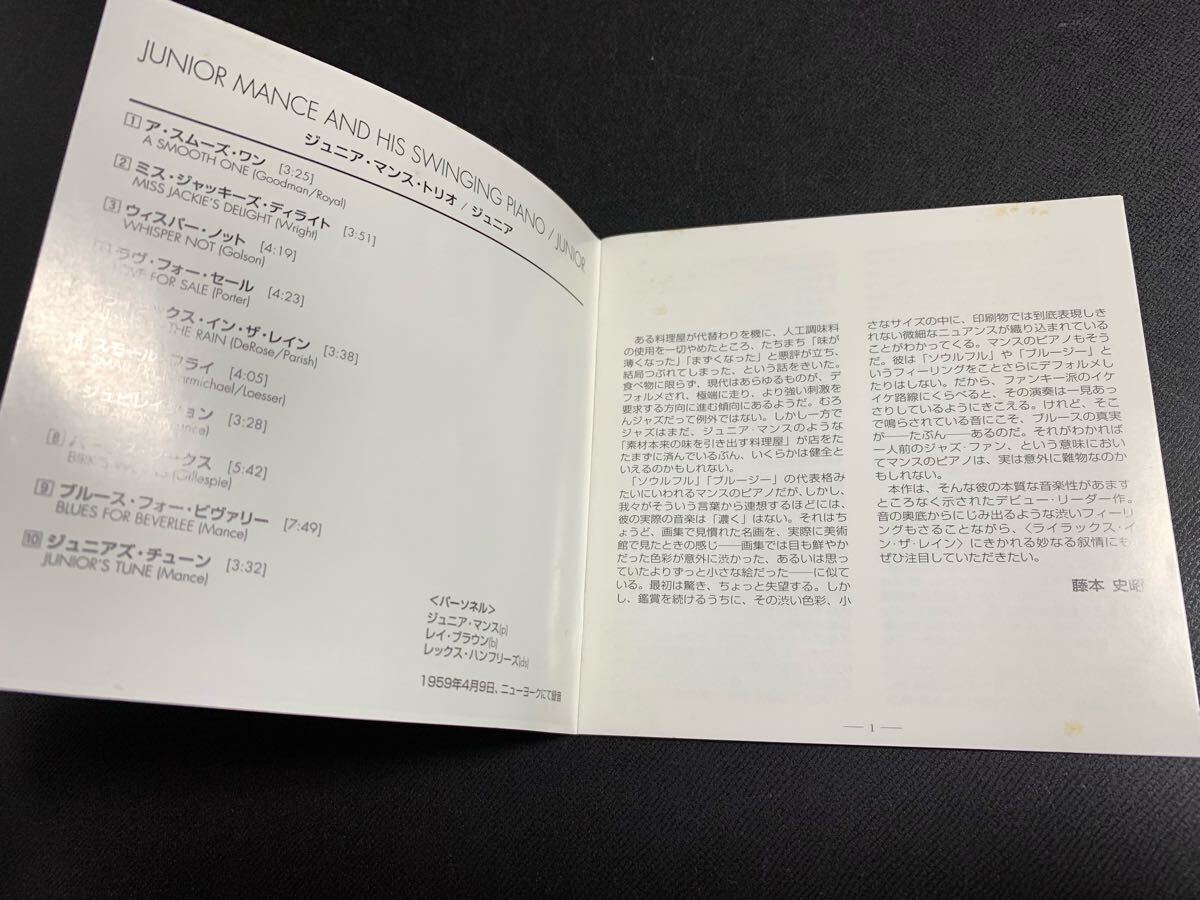 JUNIOR MANCE AND HIS SWINGING PIANO / JUNIOR
ジュニア・マンス・トリオ / ジュニア
1 ア・スムーズ・ワン [3:25]
A SMOOTH ONE (Goodman/Royal)
2 ミス・ジャッキーズ・ディライト [3:51]
MISS JACKIE'S DELIGHT (Wright)
3 ウィスパー・ノット [4:19]
WHISPER NOT (Golson)
ラヴ・フォー・セール [4:23]
LOVE FOR SALE (Porter)
ックス・イン・ザ・レイン [3:38]
THE RAIN (DeRose/Parish)
スモール・フライ [4:05]
SMALL (Carmichael/Loesser)
ション [3:28]
8 [5:42]
BIRK'S WORKS (Gillespie)
9 ブルース・フォー・ビヴァリー [7:49]
BLUES FOR BEVERLEE (Mance)
10 ジュニアズ・チューン [3:32]
JUNIOR'S TUNE (Mance)
<パーソネル>
ジュニア・マンス(p)
レイ・ブラウン(b)
レックス・ハンフリーズ(ds)
1959年4月9日、ニューヨークにて録音
ある料理屋が代替わりを機に、人工調味料
の使用を一切やめたところ、たちまち「味が
薄くなった」「まずくなった」と悪評が立ち、
結局つぶれてしまった、という話をきいた。
食べ物に限らず、現代はあらゆるものが、デ
フォルメされ、極端に走り、より強い刺激を
要求する方向に進む傾向にあるようだ。むろ
んジャズだって例外ではない。しかし一方で
ジャズはまだ、ジュニア・マンスのような
「素材本来の味を引き出す料理屋」が店をた
たまずに済んでいるぶん、いくらかは健全と
いえるのかもしれない。
「ソウルフル」「ブルージー」の代表格み
たいにいわれるマンスのピアノだが、しかし、
我々がそういう言葉から連想するほどには、
彼の実際の音楽は「濃く」はない。それはち
ょうど、画集で見慣れた名画を、実際に美術
館で見たときの感じ──画集では目も鮮やか
だった色彩が意外に渋かった、あるいは思っ
ていたよりずっと小さな絵だった──に似て
いる。最初は驚き、ちょっと失望する。しか
し、鑑賞を続けるうちに、その渋い色彩、小
さなサイズの中に、印刷物では到底表現しき
れない微細なニュアンスが織り込まれている
ことがわかってくる。マンスのピアノもそう
だ。彼は「ソウルフル」や「ブルージー」と
いうフィーリングをことさらにデフォルメし
たりはしない。だから、ファンキー派のイケ
イケ路線にくらべると、その演奏は一見あっ
さりしているようにきこえる。けれど、そこ
で鳴らされている音にこそ、ブルースの真実
が──たぶん──あるのだ。それがわかれば
一人前のジャズ・ファン、という意味におい
てマンスのピアノは、実は意外に難物なのか
もしれない。
本作は、そんな彼の本質な音楽性があます
ところなく示されたデビュー・リーダー作。
音の奥底からにじみ出るような渋いフィーリ
ングもさることながら、〈ライラックス・イ
ン・ザ・レイン〉にきかれる妙なる叙情にも
ぜひ注目していただきたい。
藤本 史昭
— 1 —